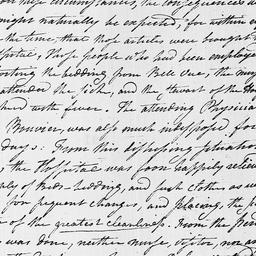 on these circumstances, the consequences a
might naturally be expected, for within a
the time, that those articles were brought t
spital, those people who had been employe
orting the bedding from Belle Vue, the nur
attended the sick, and the most of the Ho
ized with fever. The attending Physicia
Brower, was also much indisposed for
days. From this distressing situation
the Hospital was soon happily relie
ply of Beds-bedding, and such clothes as w
for frequent changes, and placing the p
e of the greatest cleanliness. From the per
was done, neither nurse, doctor, nor an